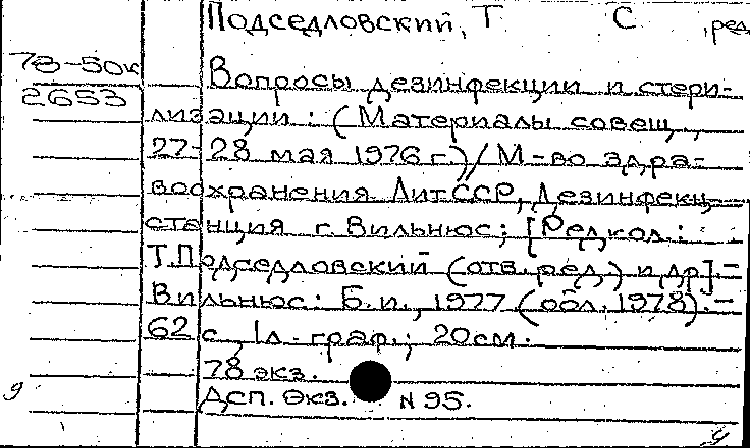 Подседловский, Т С , ред
78-50к
2653
Вопросы дезинфекции и стери-
лизации : (Материалы совещ.,
27-28 мая 1976 г.)/М-во здра-
воохранения ЛитССР, Дезинфекц.
станция г. Вильнюс; [Редкол.:
Т.Подседловский (отв. ред.) и др].-
Вильнюс: Б.и., 1977 (обл. 1978).-
62 с., 1л. граф.; 20см.
78 экз.
ДСП. Экз. N 95.